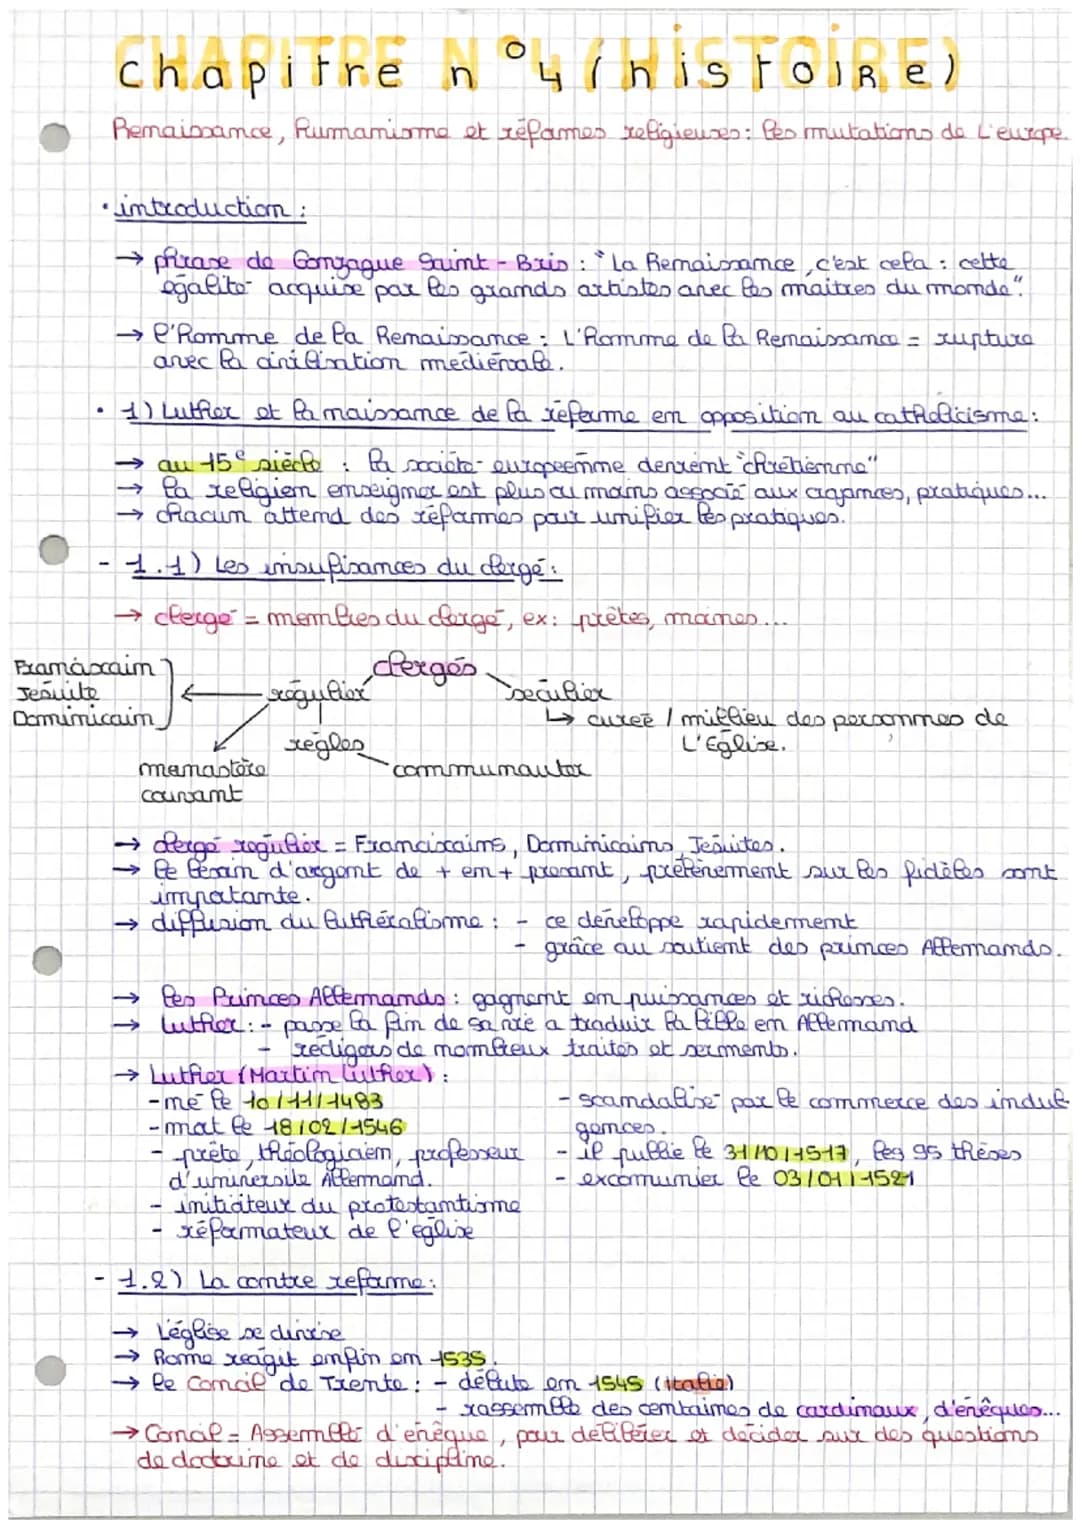 CHAPITRE N°4 (HISTOIRE)
Renaissance, humanisme et réformes religieuses : les mutations de L'europe.
• introduction :
→ phrase de Gonzague Saint-Bris : "La Renaissance, c'est cela : cette
égalité acquise par les grands artistes avec les maitres du monde".
→ l'homme de la Renaissance : L'homme de la Renaissance = rupture
avec la civilisation médiévale.
• 1) Luther et la naissance de la réforme en opposition au catholicisme :
→ au 15e siècle : la société europeenne devient "chrétienne"
→ la religion enseigner est plus ou moins associé aux croyances, pratiques...
→ chacun attend des réformes pour unifier les pratiques.
- 1.1) Les insufisances du clergé :
→ clergé = membres du clergé, ex : prêtes, moines...
clergés
Framáscain
Jesuite
Dominicain
régulier
seculier
↳ cureé / millieu des personnes de
L'Eglise.
règles
monastère
couvant
communauter
→ clergé regulier = Franciscains, Dominicains, Jesuites.
→ le besoin d'argent de + en + presant, prélèvement sur les fidèles sont
impotante.
→ diffusion du luthéralisme : - ce développe rapidement
- grâce au soutient des princes Allemands.
→ les Princes Allemands : gagnent en puissances et richesses.
→ Luther : - passe la fin de sa vie a traduir la bible en Allemand
- redigers de nombreux traites et serments.
→ Luther (Martin Luther) :
- né le 10/11/1483
- mort le 18/02/1546
- prête, théologiaien, professeur
d'université Allemand.
- initiateur du protestantisme
- réformateur de l'église
- scandalisé par le commerce des indul-
gences.
- il publie le 31/10/1517, les 95 thèses
- excomunier le 03/01/1521
- 1.2) La contre reforme :
→ L'église se divise
→ Rome reagit enfin en 1535.
→ le Concil de Trente : - débute en 1545 (Italie)
- rassemble des centaines de cardinaux, d'évêques...
→ Concil = Assemblé d'évêque, pour délibérer et décider sur des questions
de doctrine et de discipline.